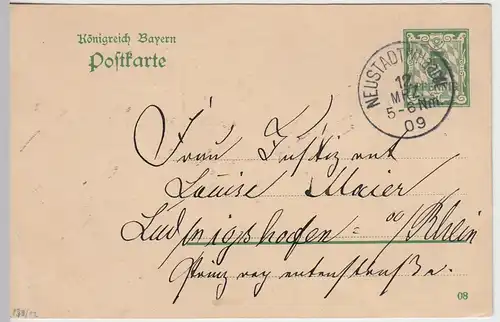 Königreich Bayern
Postkarte
NEUSTADT
12
MRZ
5-6 Nm.
09
Frau Justizrat
Louise Maier
Ludwigshafen = a/Rhein
Prinzregentenstraße.
08